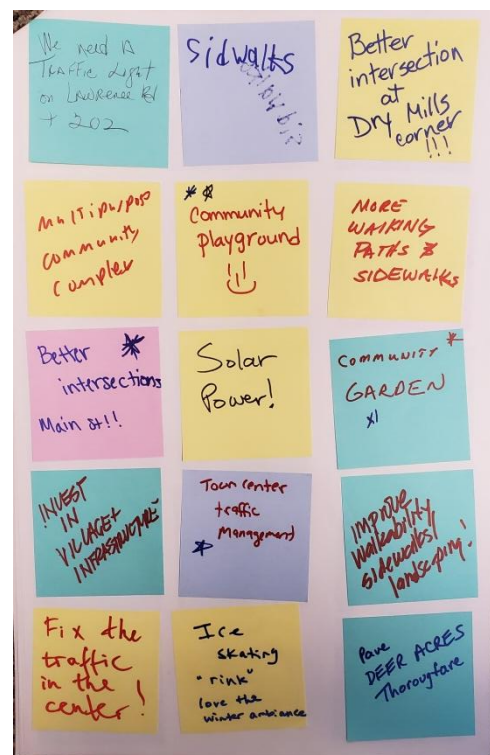 We need A
Traffic Light
on Lawrence Rd
+ 202
Sidwalks
Better
intersection
at
Dry Mills
corner
!!!
Multipurpose
community
complex
Community
playground
!!
MORE
WALKING
PATHS &
SIDEWALKS
Better
intersections
Main st!!
Solar
Power!
COMMUNITY
GARDEN
x1
INVEST
IN
VILLAGE+
INFRASTRUCTURE
Town center
traffic
Management
IMPROVE
Walkability,
sidewalks/
landscaping!
Fix the
traffic
in the
center!
Ice
skating
"rink"
love the
winter ambiance
Pave
DEER ACRES
Thorougfare